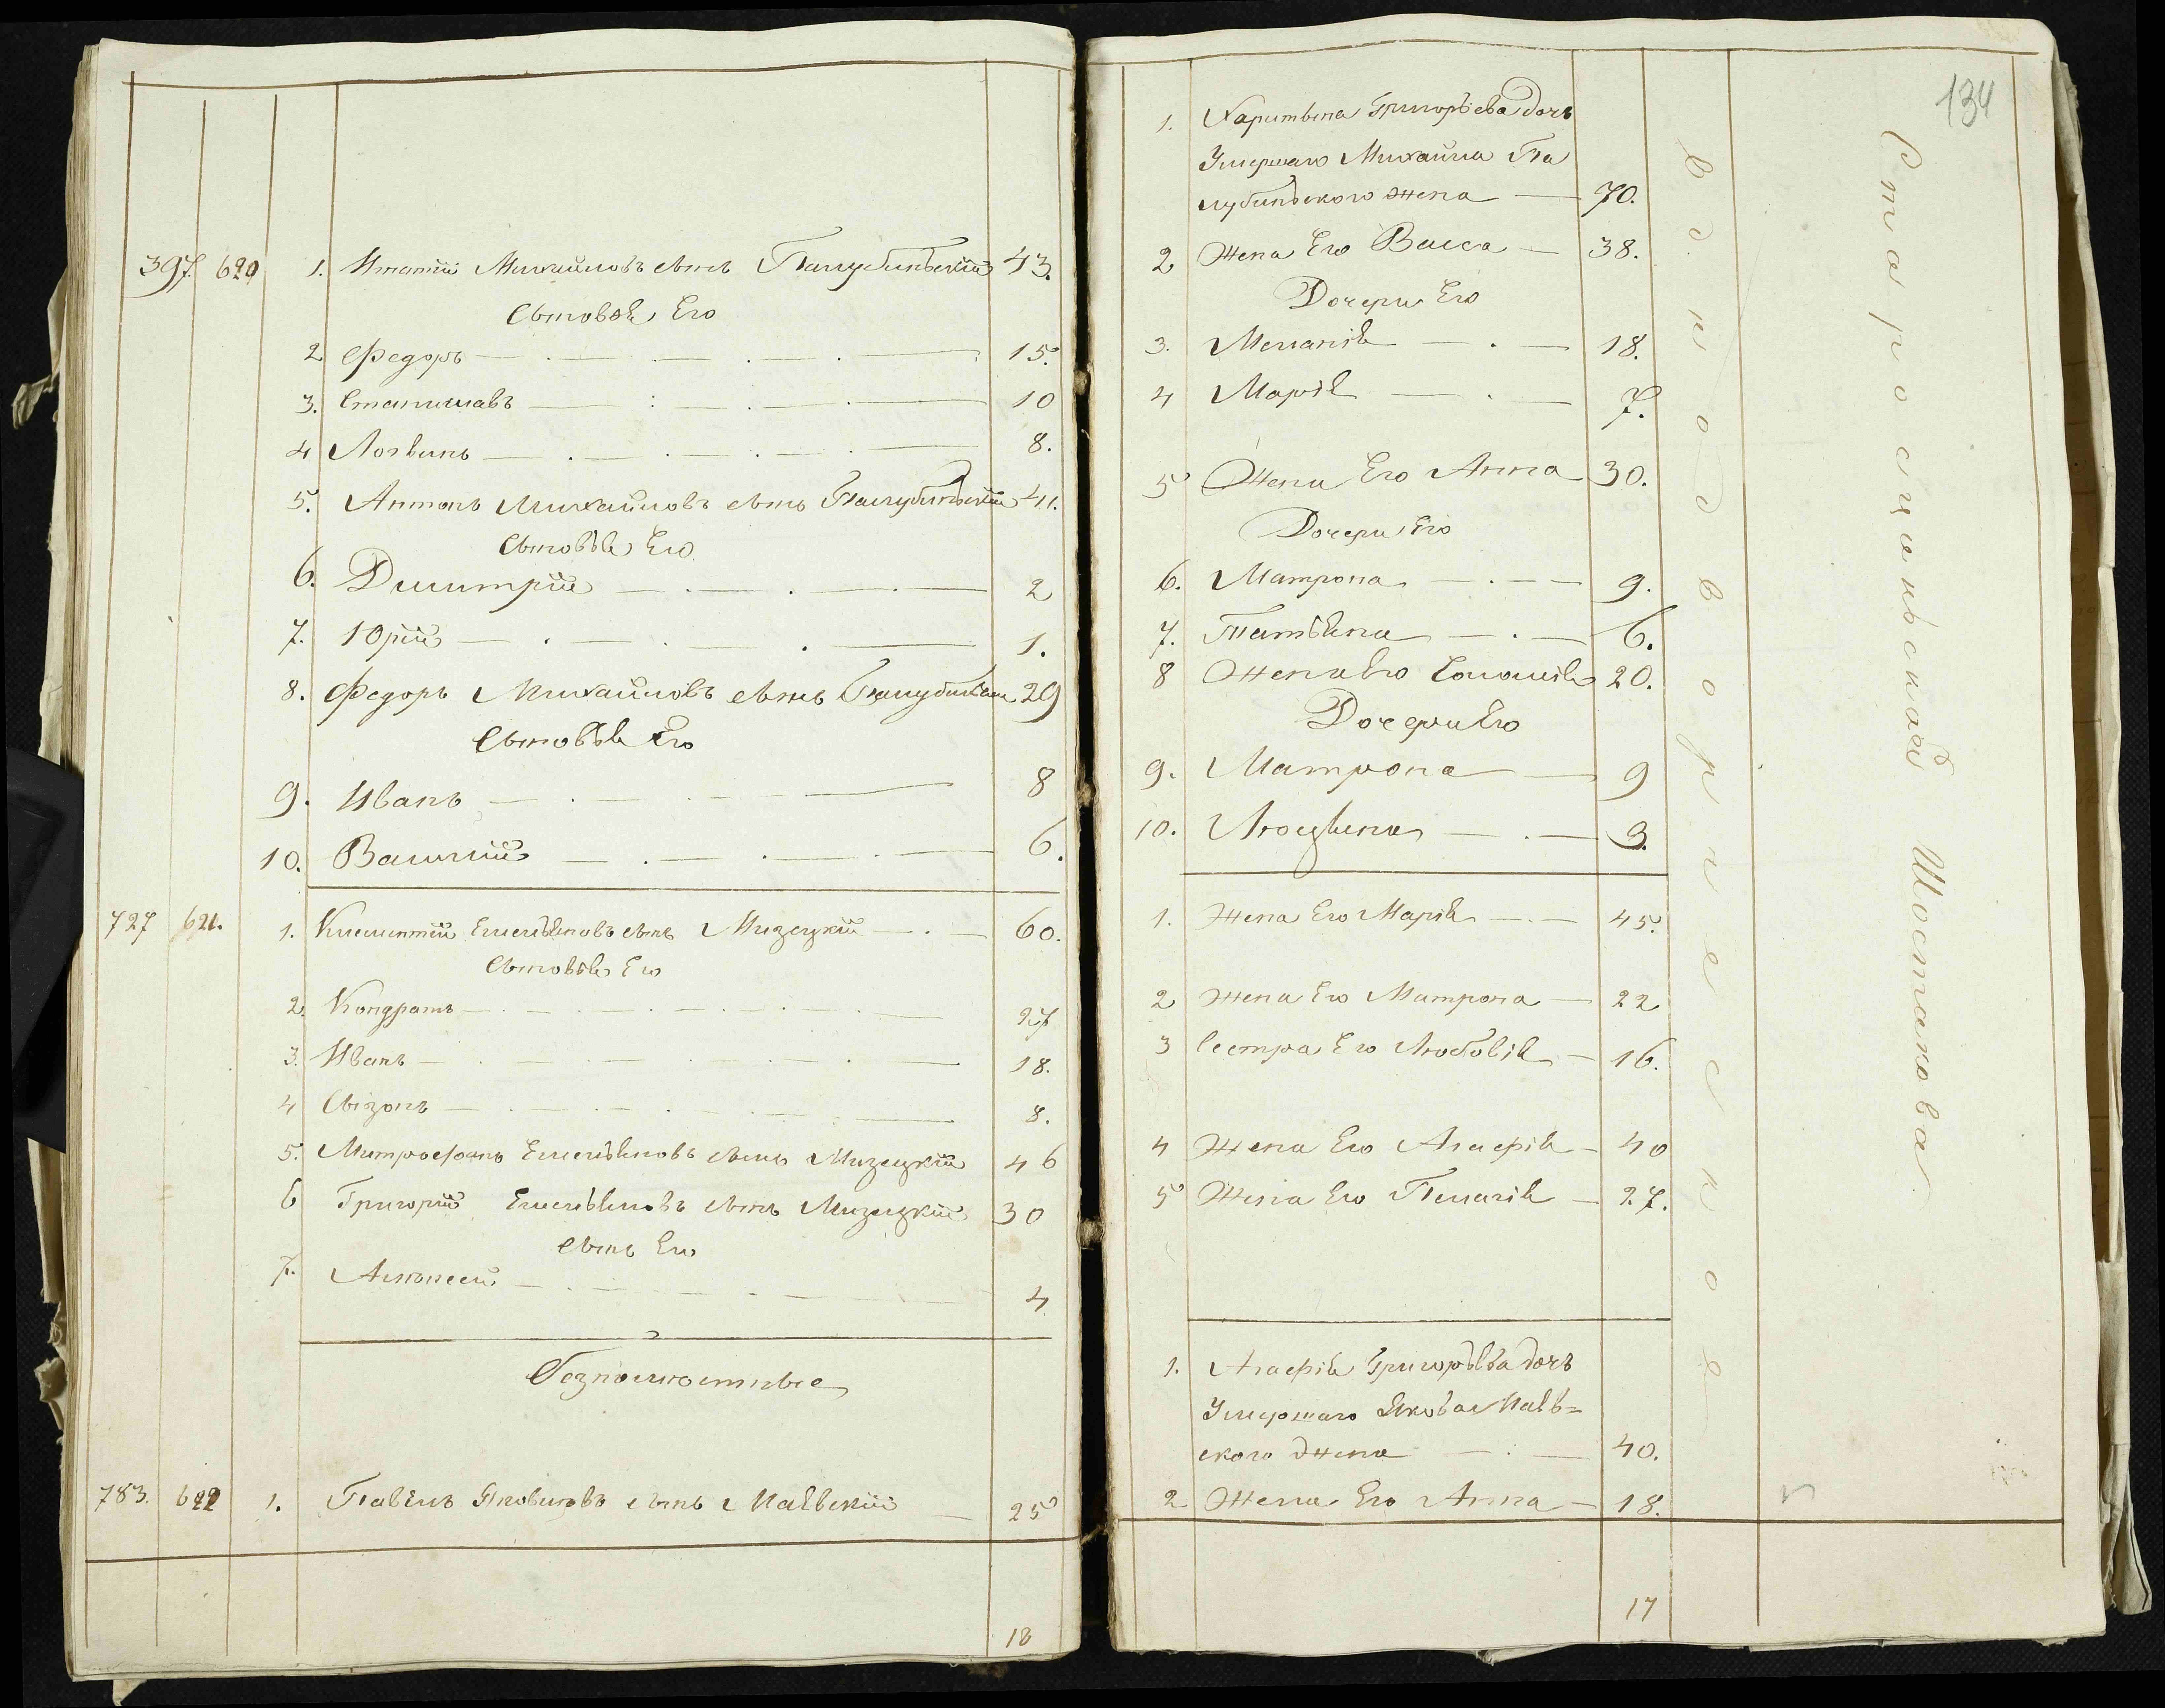 397. 620 1. Игнатій Михайловъ сынъ Палубинскій 43.
Сыновья Его
2 Федоръ 15.
3. Станиславъ 10
4 Логвинъ 8.
5. Антонъ Михайловъ сынъ Палубинскій 41.
Сыновья Его
6. Димитрій 2
7. Юрій 1.
8. Федоръ Михайловъ сынъ 29
Сыновья Его
9. Иванъ 8
10. Василій 6.
727 621. 1. Климентій Емельяновъ сынъ Мизецкій 60.
Сыновья Его
2. Кондратъ 27
3. Иванъ 18.
4 Сызонъ 8.
5. Митрофанъ Емельяновъ сынъ Мизецкій 46
6 Григорій Емельяновъ сынъ Мизецкій 30
сынъ Его
7. Алексей 4
Безпоместные
783. 622 1. Павелъ Яковлевъ сынъ Маевскій 25
18
134
1. Харитына Григорьева дочь
Умершаго Михайла Па
лубинского жена 70.
2 Жена Его Васса 38.
Дочери Его
3. Меланія 18.
4 Марія 7.
5 Жена Его Анна 30.
Дочери Его
6. Матрона 9.
7. Татьяна 6.
8 Жена Его Соломія 20.
Дочери Его
9. Матрона 9
10. 3.
1. Жена Его Марія 45.
2 Жена Его Матрона 22
3 Сестра Его Любовія 16.
4 Жена Его Агафія 40
5 Жена Его Пелагія 27.
1. Агафія Григорьева дочь
Умершаго Якова Маев=
ского жена 40.
2 Жена Его Анна 18.
17
въ подворпесной
Старосцянской Шостакова